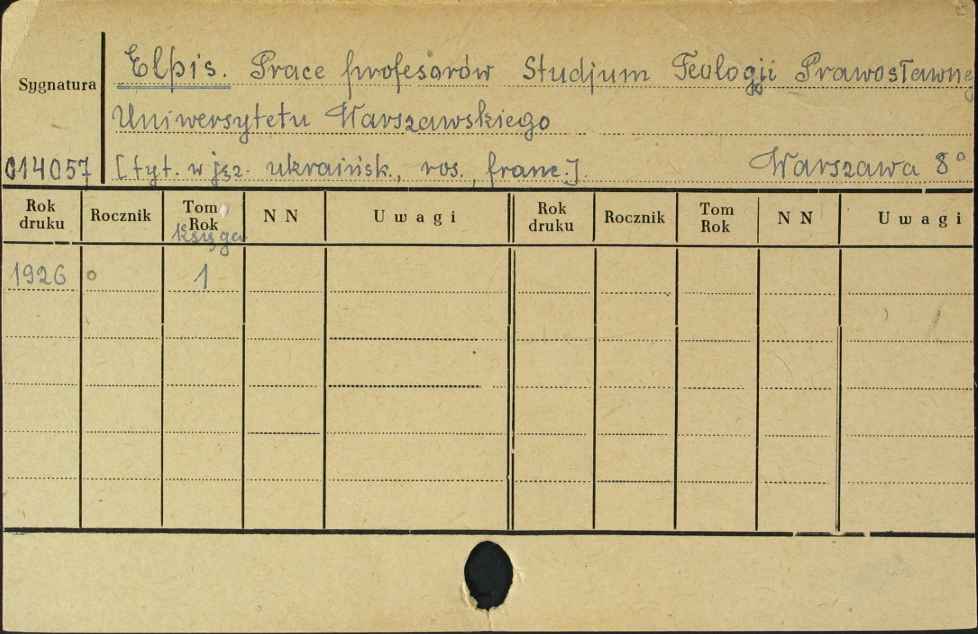 Sygnatura
Elpis. Prace profesorów Studjum Teologji Prawosławnej
Uniwersytetu Warszawskiego
014057 [tyt. w jęz. ukraińsk., ros., franc.] Warszawa 8°
Rok druku Rocznik Tom Rok księga N N Uwagi Rok druku Rocznik Tom Rok N N Uwagi
1926 o 1